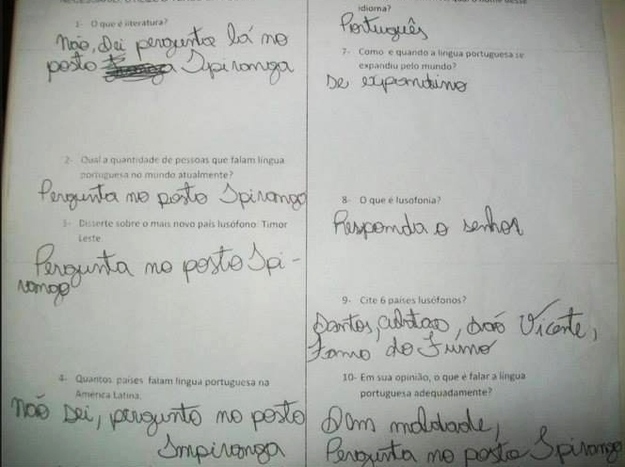 1- O que é literatura?
não, sei pergunta lá no
posto Ipiranga
2- Qual a quantidade de pessoas que falam língua
portuguesa no mundo atualmente?
Pergunta no posto Ipiranga
3- Disserte sobre o mais novo país lusófono: Timor
Leste
Pergunta no posto Ipi-
ranga
4- Quantos países falam língua portuguesa na
América Latina.
não sei, pergunto no posto
Impiranga
idioma?
Português
7- Como e quando a língua portuguesa se
expandiu pelo mundo?
se expandino
8- O que é lusofonia?
Responda o senhor
9- Cite 6 países lusófonos?
Santos, cubatao, são Vicente,
10- Em sua opinião, o que é falar a língua
portuguesa adequadamente?
Sam maldade,
Pergunta no posto Ipiranga